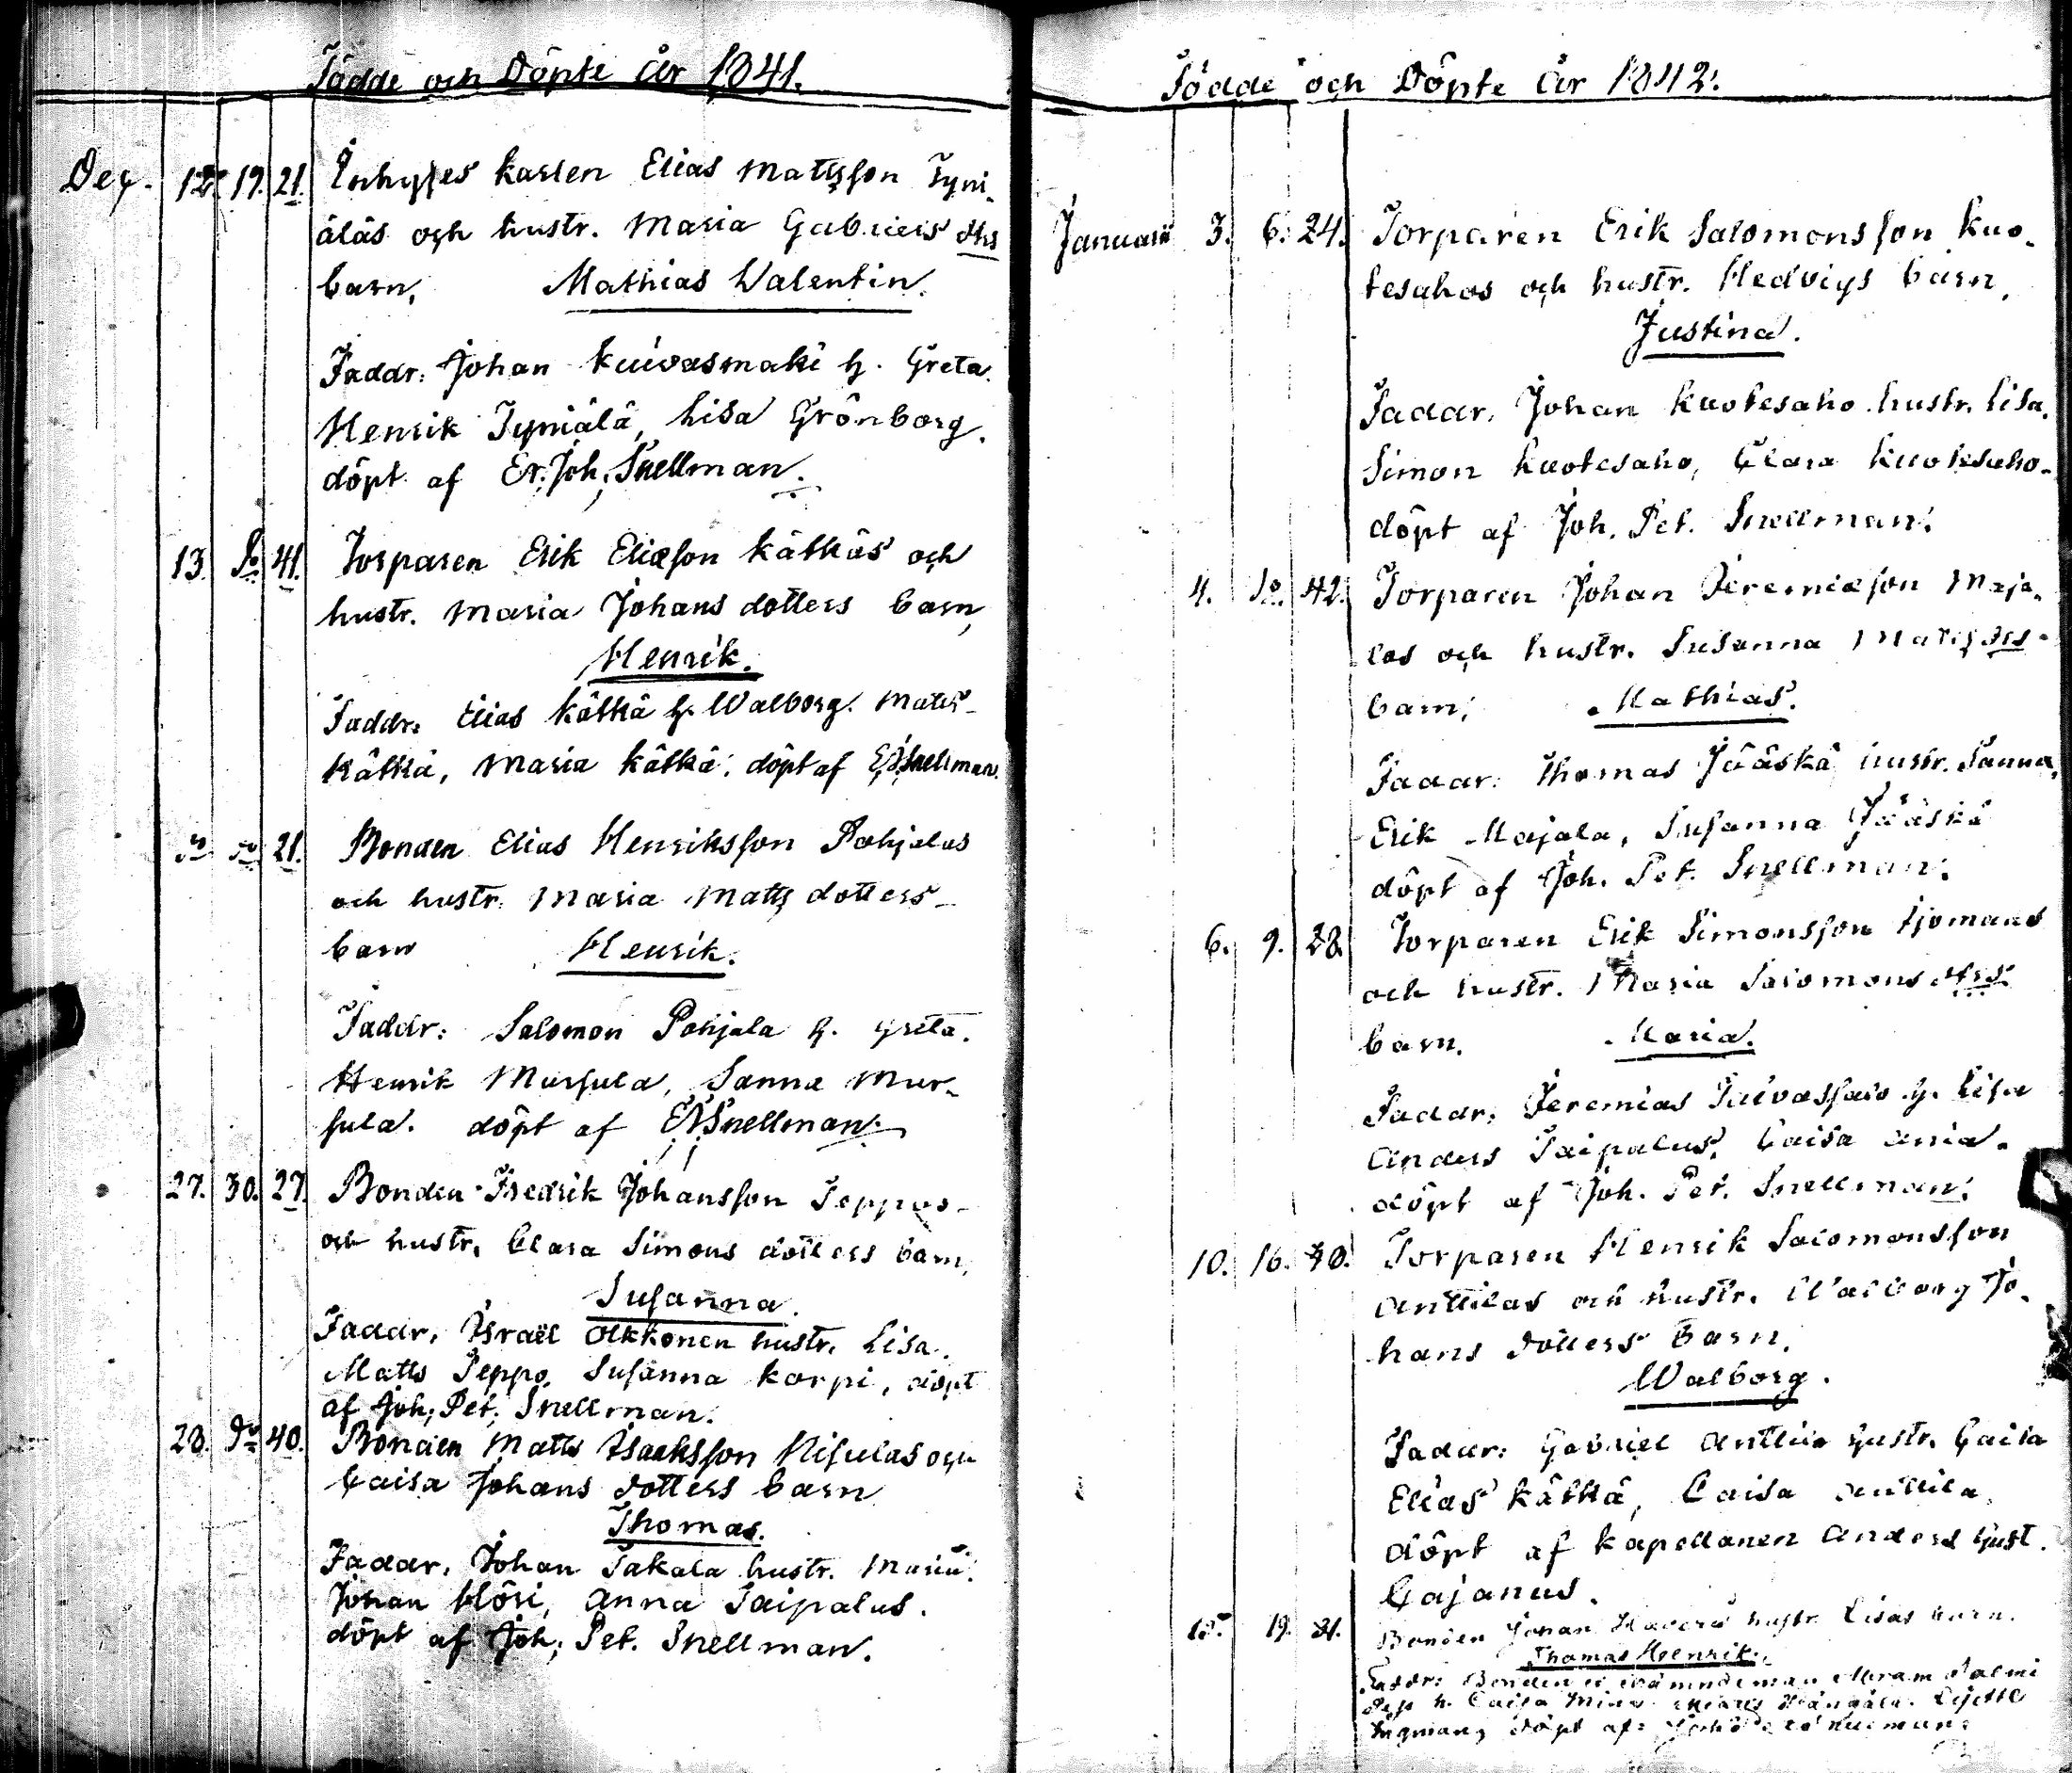 Födde och Döpte År 1841.
Dec. 12. 19. 21. Inhyses karlen Elias Mattsson Tyni-
äläs och hustr. Maria Gabriels dtrs
barn, Mathias Walentin.
Faddr: Johan Kuivasmaki h. Greta.
Henrik Tyniälä, Lisa Grönborg.
döpt af Er. Joh. Snellman.
13. Do 41. Torparen Erik Eliæson Kätkäs och
hustr. Maria Johans dotters barn,
Henrik.
Faddr: Elias Kätkä h. Walborg. Matts
Kätkä, Maria Kätkä. döpt af EJSnellman.
Do Do 21. Bonden Elias Henriksson Pohjalas
och hustr. Maria Matts dotters
barn Henrik.
Faddr: Salomon Pohjala h. Greta.
Henrik Mursula, Sanna Mur-
sula. döpt af EJSnellman.
27. 30. 27. Bonden Fredrik Johansson Seppos
och hustr. Clara Simons dotters barn,
Susanna.
Faddr. Israël Olkkonen hustr. Lisa.
Matts Seppo, Susanna Korpi, döpt
af Joh. Pet. Snellman.
28. Do 40. Bonden Matts Isacksson Nisulas och
Caisa Johans dotters barn
Thomas.
Faddr. Johan Takala hustr. Maria.
Johan Höri, Anna Taipalus.
döpt af Joh. Pet. Snellman.
Födde och Döpte År 1842.
Januarii 3. 6. 24. Torparen Erik Salomonsson Kuo-
tesahos och hustr. Hedvigs barn,
Justina.
Faddr. Johan Kuotesaho hustr. Lisa.
Simon Kuotesaho, Clara Kuotesaho.
döpt af Joh. Pet. Snellman.
4. Do 42. Torparen Johan Jeremiæson Maja-
las och hustr. Susanna Matts dtrs
barn, Mathias.
Faddr: Thomas Jääskä hustr. Sanna,
Erik Majala, Susanna Jääskä
döpt af Joh. Pet. Snellman.
6. 9. 28. Torparen Erik Simonsson
och hustr. Maria Salomons dtrs
barn. Maria.
Faddr. Jeremias h. Lisa
Anders Taipalus, Caisa
döpt af Joh. Pet. Snellman.
10. 16. 30. Torparen Henrik Salomonsson
Anttilas och hustr. Walborg Jo-
hans dotters barn.
Walborg.
Faddr: Gabriel Anttila hustr. Caisa
Elias Kätkä, Caisa Anttila,
döpt af Kapellanen Anders Gust.
Cajanus.
19. 31. Bonden Johan hustr. Lisas barn.
Thomas Henrik.
Faddr: Bonden o Nämndeman Abram
h. Caisa
döpt af